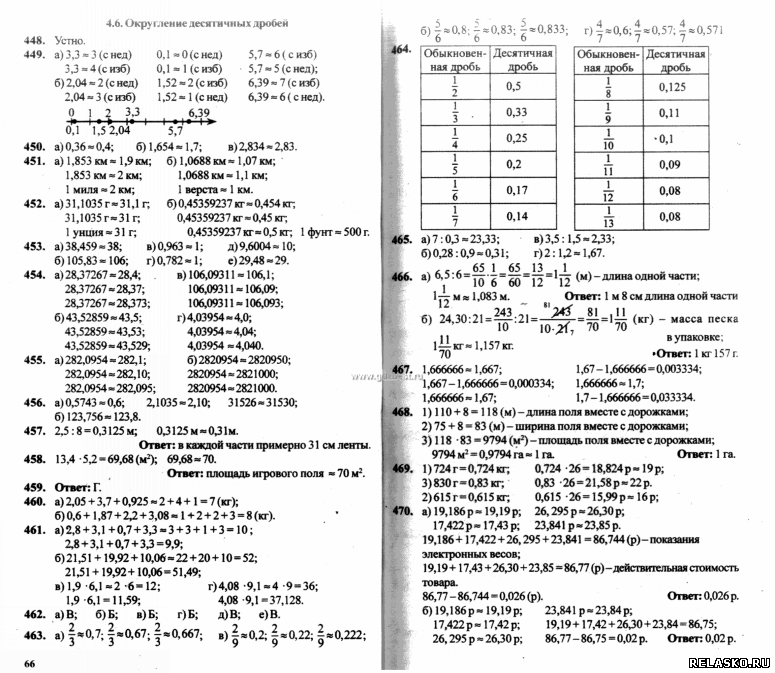 4.6. Округление десятичных дробей
448. Устно.
449. а) 3,3 ≈ 3 (с нед) 0,1 ≈ 0 (с нед) 5,7 ≈ 6 ( с изб)
3,3 ≈ 4 (с изб) 0,1 ≈ 1 (с изб) 5,7 ≈ 5 (с нед);
б) 2,04 ≈ 2 (с нед) 1,52 ≈ 2 (с изб) 6,39 ≈ 7 (с изб)
2,04 ≈ 3 (с изб) 1,52 ≈ 1 (с нед) 6,39 ≈ 6 ( с нед).
0 1 2 3,3 6,39
0,1 1,5 2,04 5,7
450. а) 0,36 ≈ 0,4; б) 1,654 ≈ 1,7; в) 2,834 ≈ 2,83.
451. а) 1,853 км ≈ 1,9 км; б) 1,0688 км ≈ 1,07 км;
1,853 км ≈ 2 км; 1,0688 км ≈ 1,1 км;
1 миля ≈ 2 км; 1 верста ≈ 1 км.
452. а) 31,1035 г ≈ 31,1 г; б) 0,45359237 кг ≈ 0,454 кг;
31,1035 г ≈ 31 г; 0,45359237 кг ≈ 0,45 кг;
1 унция ≈ 31 г; 0,45359237 кг ≈ 0,5 кг; 1 фунт ≈ 500 г.
453. а) 38,459 ≈ 38; в) 0,963 ≈ 1; д) 9,6004 ≈ 10;
б) 105,83 ≈ 106; г) 0,782 ≈ 1; е) 29,48 ≈ 29.
454. а) 28,37267 ≈ 28,4; в) 106,09311 ≈ 106,1;
28,37267 ≈ 28,37; 106,09311 ≈ 106,09;
28,37267 ≈ 28,373; 106,09311 ≈ 106,093;
б) 43,52859 ≈ 43,5; г) 4,03954 ≈ 4,0;
43,52859 ≈ 43,53; 4,03954 ≈ 4,04;
43,52859 ≈ 43,529; 4,03954 ≈ 4,040.
455. а) 282,0954 ≈ 282,1; б) 2820954 ≈ 2820950;
282,0954 ≈ 282,10; 2820954 ≈ 2821000;
282,0954 ≈ 282,095; 2820954 ≈ 2821000.
456. а) 0,5743 ≈ 0,6; 2,1035 ≈ 2,10; 31526 ≈ 31530;
б) 123,756 ≈ 123,8.
457. 2,5 : 8 = 0,3125 м; 0,3125 м ≈ 0,31м.
Ответ: в каждой части примерно 31 см ленты.
458. 13,4 · 5,2 = 69,68 (м²); 69,68 ≈ 70.
Ответ: площадь игрового поля ≈ 70 м².
459. Ответ: Г.
460. а) 2,05 + 3,7 + 0,925 ≈ 2 + 4 + 1 = 7 (кг);
б) 0,6 + 1,87 + 2,2 + 3,08 ≈ 1 + 2 + 2 + 3 = 8 (кг).
461. а) 2,8 + 3,1 + 0,7 + 3,3 ≈ 3 + 3 + 1 + 3 = 10 ;
2,8 + 3,1 + 0,7 + 3,3 = 9,9;
б) 21,51 + 19,92 + 10,06 ≈ 22 + 20 + 10 = 52;
21,51 + 19,92 + 10,06 = 51,49;
в) 1,9 · 6,1 ≈ 2 · 6 = 12; г) 4,08 · 9,1 ≈ 4 · 9 = 36;
1,9 · 6,1 = 11,59; 4,08 · 9,1 = 37,128.
462. а) В; б) Б; в) Б; г) Б; д) В; е) В.
463. а) 2/3 ≈ 0,7; 2/3 ≈ 0,67; 2/3 ≈ 0,667; в) 2/9 ≈ 0,2; 2/9 ≈ 0,22; 2/9 ≈ 0,222;
66
б) 5/6 ≈ 0,8; 5/6 ≈ 0,83; 5/6 ≈ 0,833; г) 4/7 ≈ 0,6; 4/7 ≈ 0,57; 4/7 ≈ 0,571
464.
Обыкновен- Десятичная Обыкновен- Десятичная
ная дробь дробь ная дробь дробь
1/2 0,5 1/8 0,125
1/3 0,33 1/9 0,11
1/4 0,25 1/10 0,1
1/5 0,2 1/11 0,09
1/6 0,17 1/12 0,08
1/7 0,14 1/13 0,08
465. а) 7 : 0,3 ≈ 23,33; в) 3,5 : 1,5 ≈ 2,33;
б) 0,28 : 0,9 ≈ 0,31; г) 2 : 1,2 ≈ 1,67.
466. а) 6,5 : 6 = 65/10 · 1/6 = 65/60 = 13/12 = 1 1/12 (м) – длина одной части;
1 1/12 м ≈ 1,083 м. Ответ: 1 м 8 см длина одной части
б) 24,30 : 21 = 243/10 : 21 = 81 243/10 · 21 7 = 81/70 = 1 11/70 (кг) – масса песка
в упаковке;
1 11/70 кг ≈ 1,157 кг.
Ответ: 1 кг 157 г.
www.gdzbest.ru
467. 1,666666 ≈ 1,667; 1,67 – 1,666666 = 0,003334;
1,667 – 1,666666 = 0,000334; 1,666666 ≈ 1,7;
1,666666 ≈ 1,67; 1,7 – 1,666666 = 0,033334.
468. 1) 110 + 8 = 118 (м) – длина поля вместе с дорожками;
2) 75 + 8 = 83 (м) – ширина поля вместе с дорожками;
3) 118 · 83 = 9794 (м²) – площадь поля вместе с дорожками;
9794 м² = 0,9794 га ≈ 1 га. Ответ: 1 га.
469. 1) 724 г = 0,724 кг; 0,724 · 26 = 18,824 р ≈ 19 р;
3) 830 г = 0,83 кг; 0,83 · 26 = 21,58 р ≈ 22 р.
2) 615 г = 0,615 кг; 0,615 · 26 = 15,99 р ≈ 16 р;
470. а) 19,186 р ≈ 19,19 р; 26, 295 р ≈ 26,30 р;
17,422 р ≈ 17,43 р; 23,841 р ≈ 23,85 р.
19,186 + 17,422 + 26, 295 + 23,841 = 86,744 (р) – показания
электронных весов;
19,19 + 17,43 + 26,30 + 23,85 = 86,77 (р) – действительная стоимость
товара.
86,77 – 86,744 = 0,026 (р). Ответ: 0,026 р.
б) 19,186 р ≈ 19,19 р; 23,841 р ≈ 23,84 р;
17,422 р ≈ 17,42 р; 19,19 + 17,42 + 26,30 + 23,84 = 86,75;
26, 295 р ≈ 26,30 р; 86,77 – 86,75 = 0,02 р. Ответ: 0,02 р.
RELASKO.RU